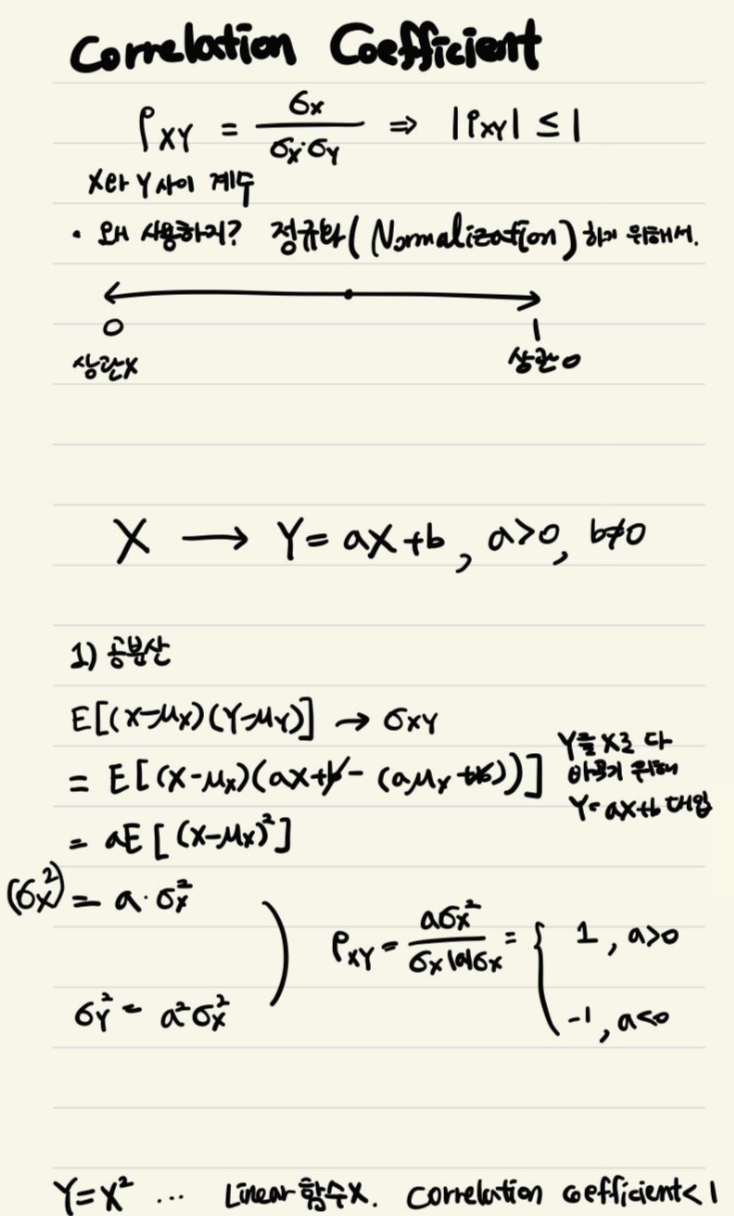 Correlation Coefficient
ρXY = σx / σx·σY ⇒ |ρXY| ≤ 1
X와 Y 사이 계수
· 왜 사용하지? 정규화(Normalization)하기 위해서.
0 1
상관X 상관O
X → Y = aX+b, a>0, b≠0
1) 공분산
E[(X-μX)(Y-μY)] → σXY
= E[(X-μX)(aX+b - (aμX+b))] Y를 X로 다
바꾸기 위해
Y=aX+b 대입
= aE[(X-μX)²]
(σX²) = a·σX²
σY² = a²σX² ) ρXY = aσX² / σX|a|σX = { 1, a>0
-1, a<0
Y=X² ... Linear 함수X. Correlation coefficient<1